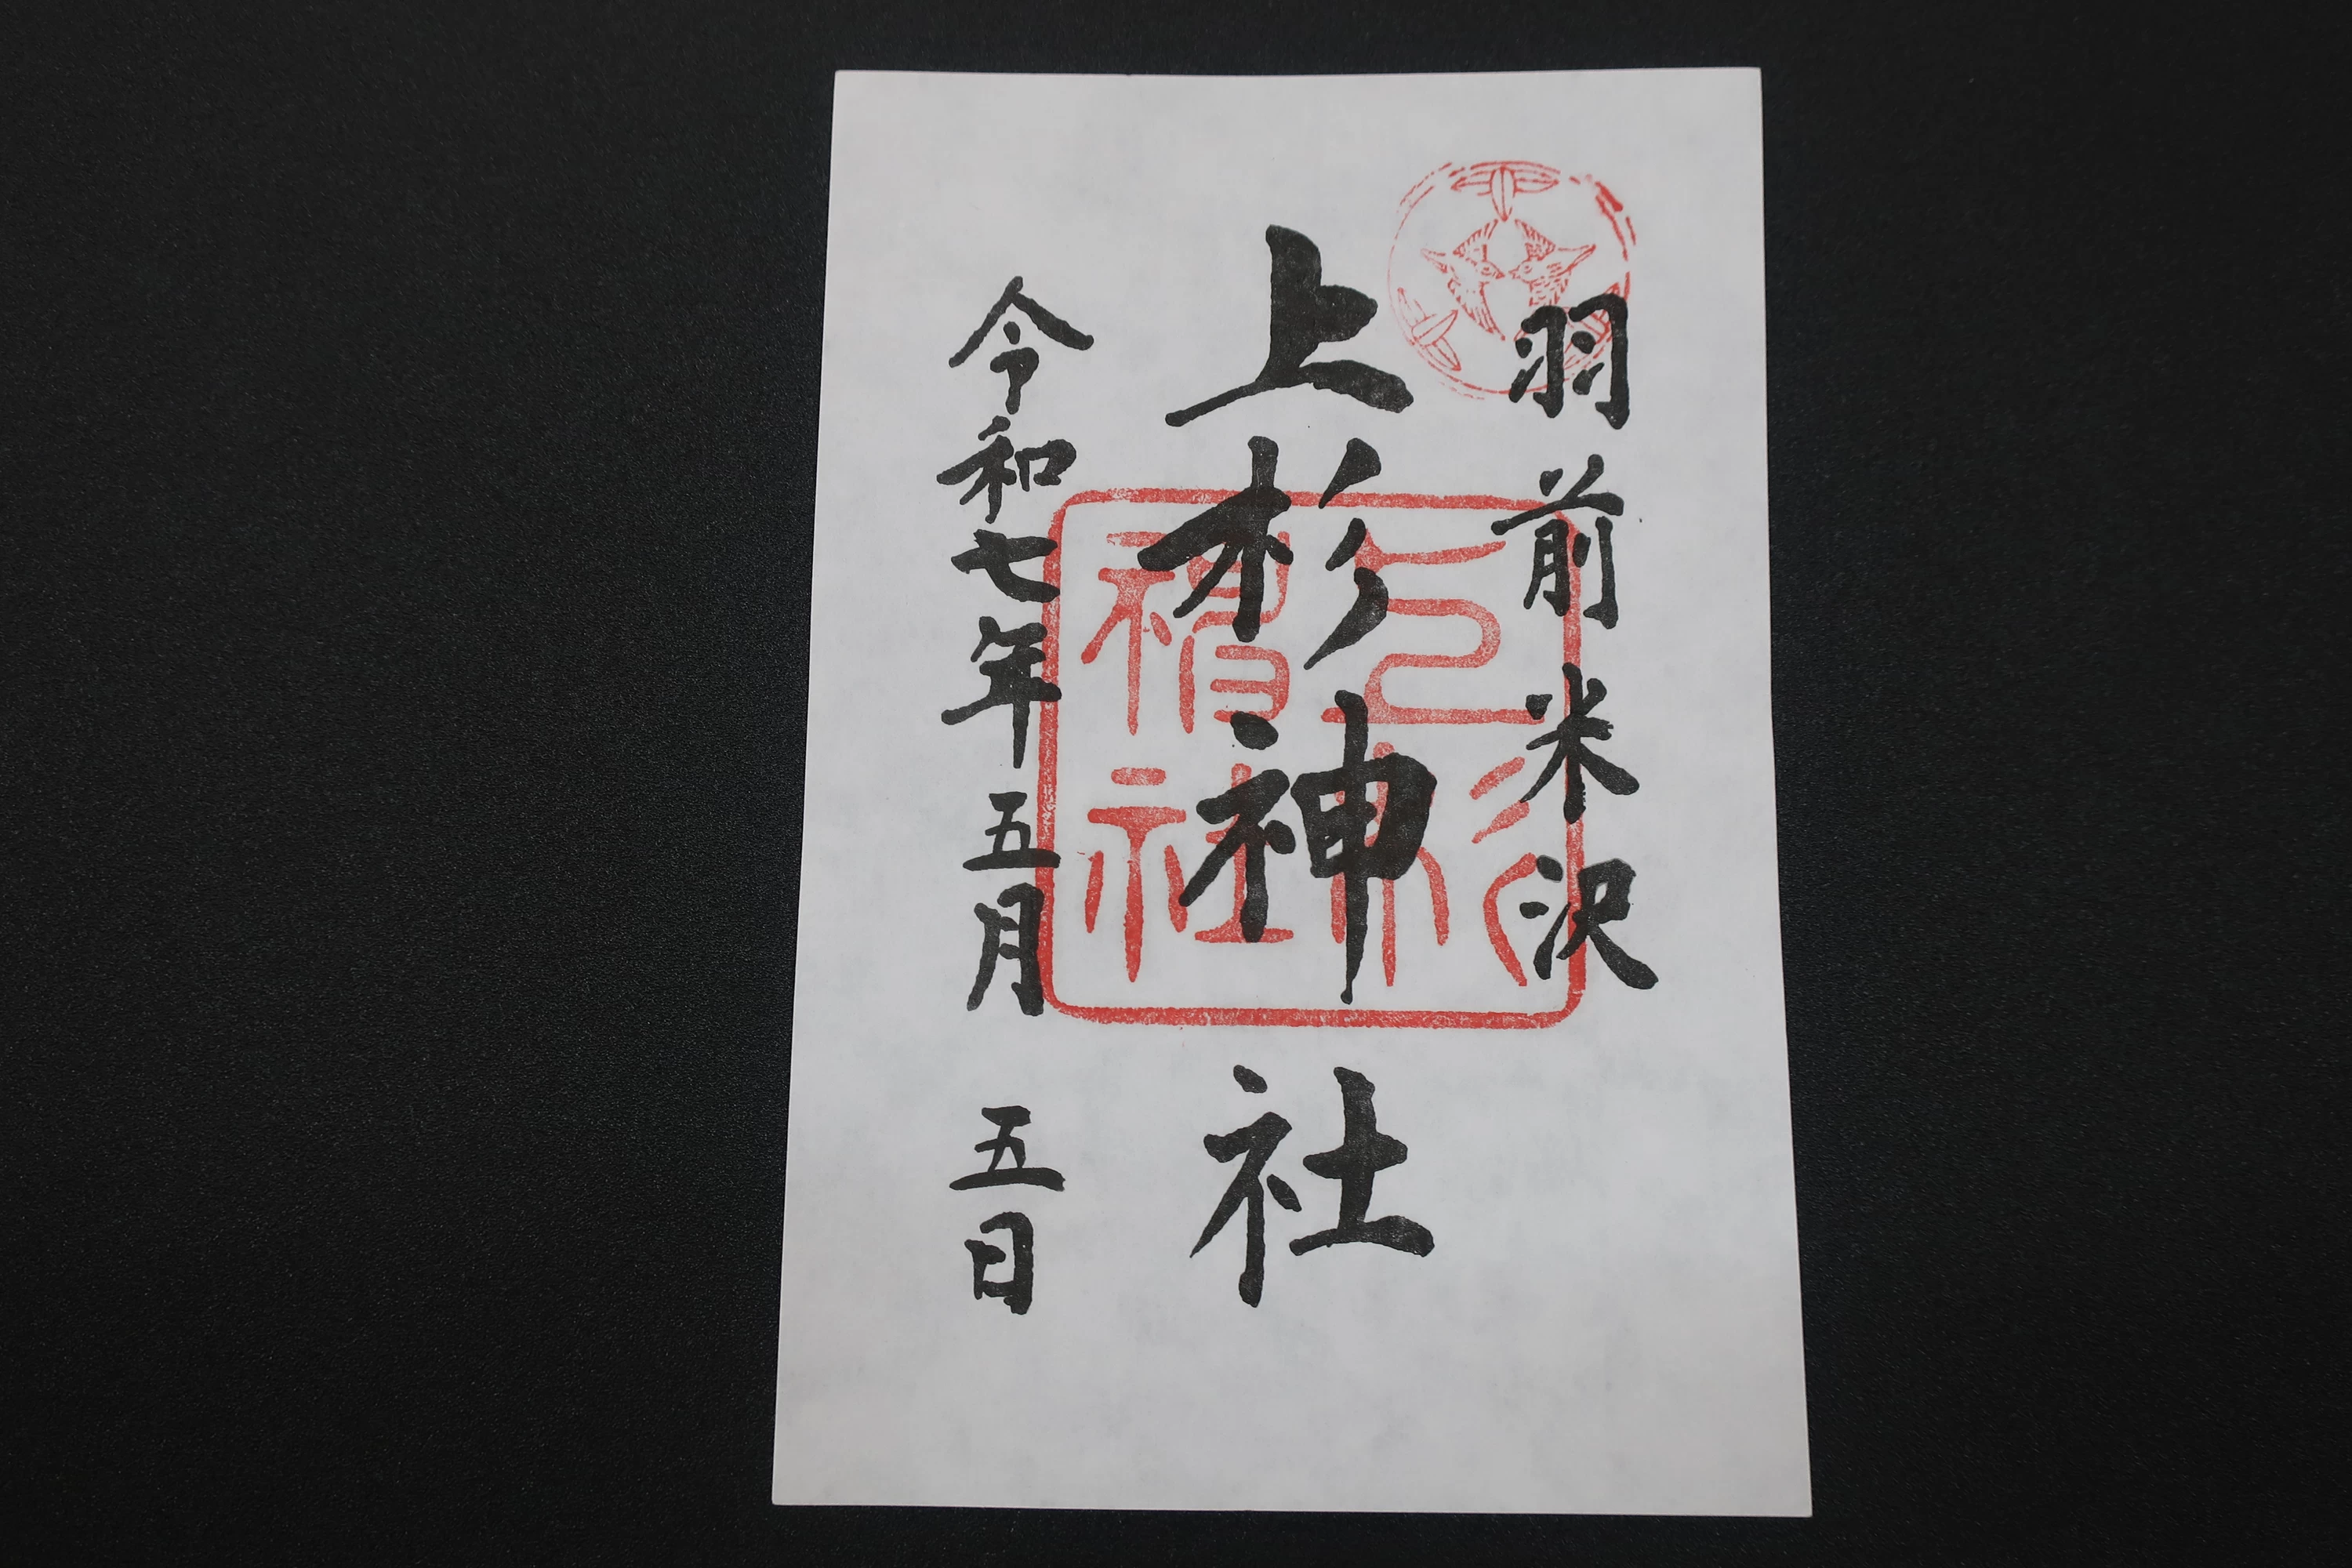 羽前米沢
上杉神社
令和七年五月五日
上杉神社